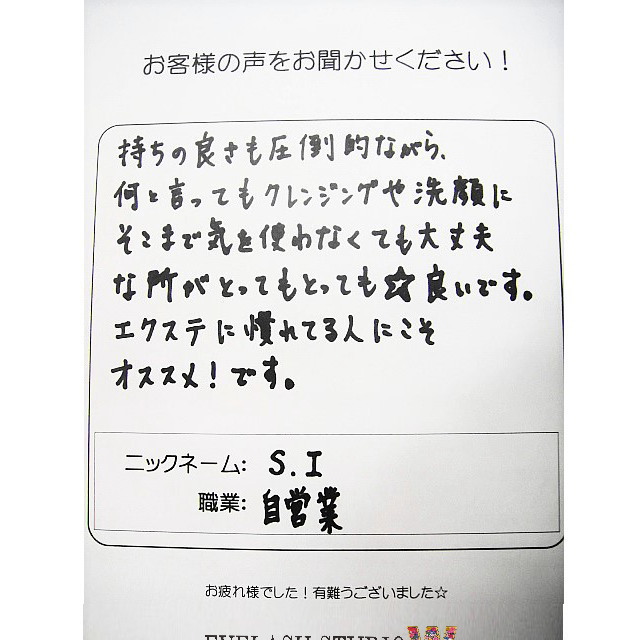 お客様の声をお聞かせください！
持ちの良さも圧倒的ながら、
何と言ってもクレンジングや洗顔に
そこまで気を使わなくても大丈夫
な所がとってもとっても☆良いです。
エクステに慣れてる人にこそ
オススメ！です。
ニックネーム: S.I
職業: 自営業
お疲れ様でした！有難うございました☆
EYELASH STUDIO